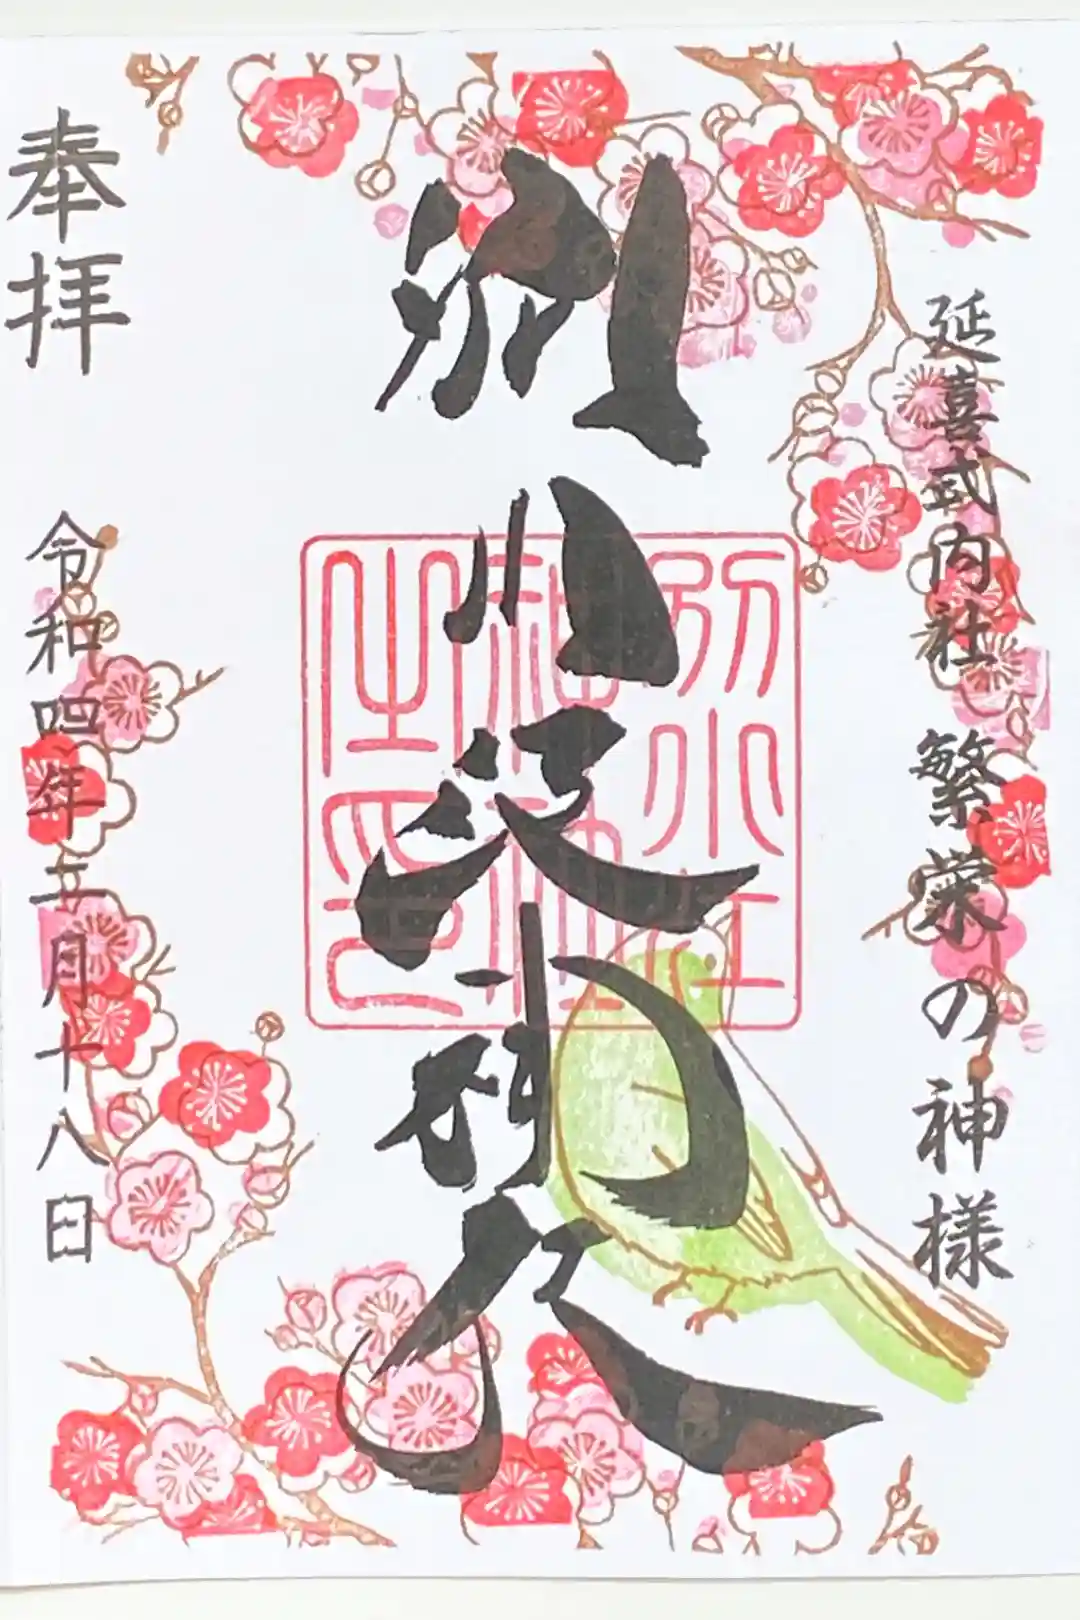 延喜式内社 繁栄の神様
別小江神社
別小江
神社
之印
奉拝
令和四年二月十八日